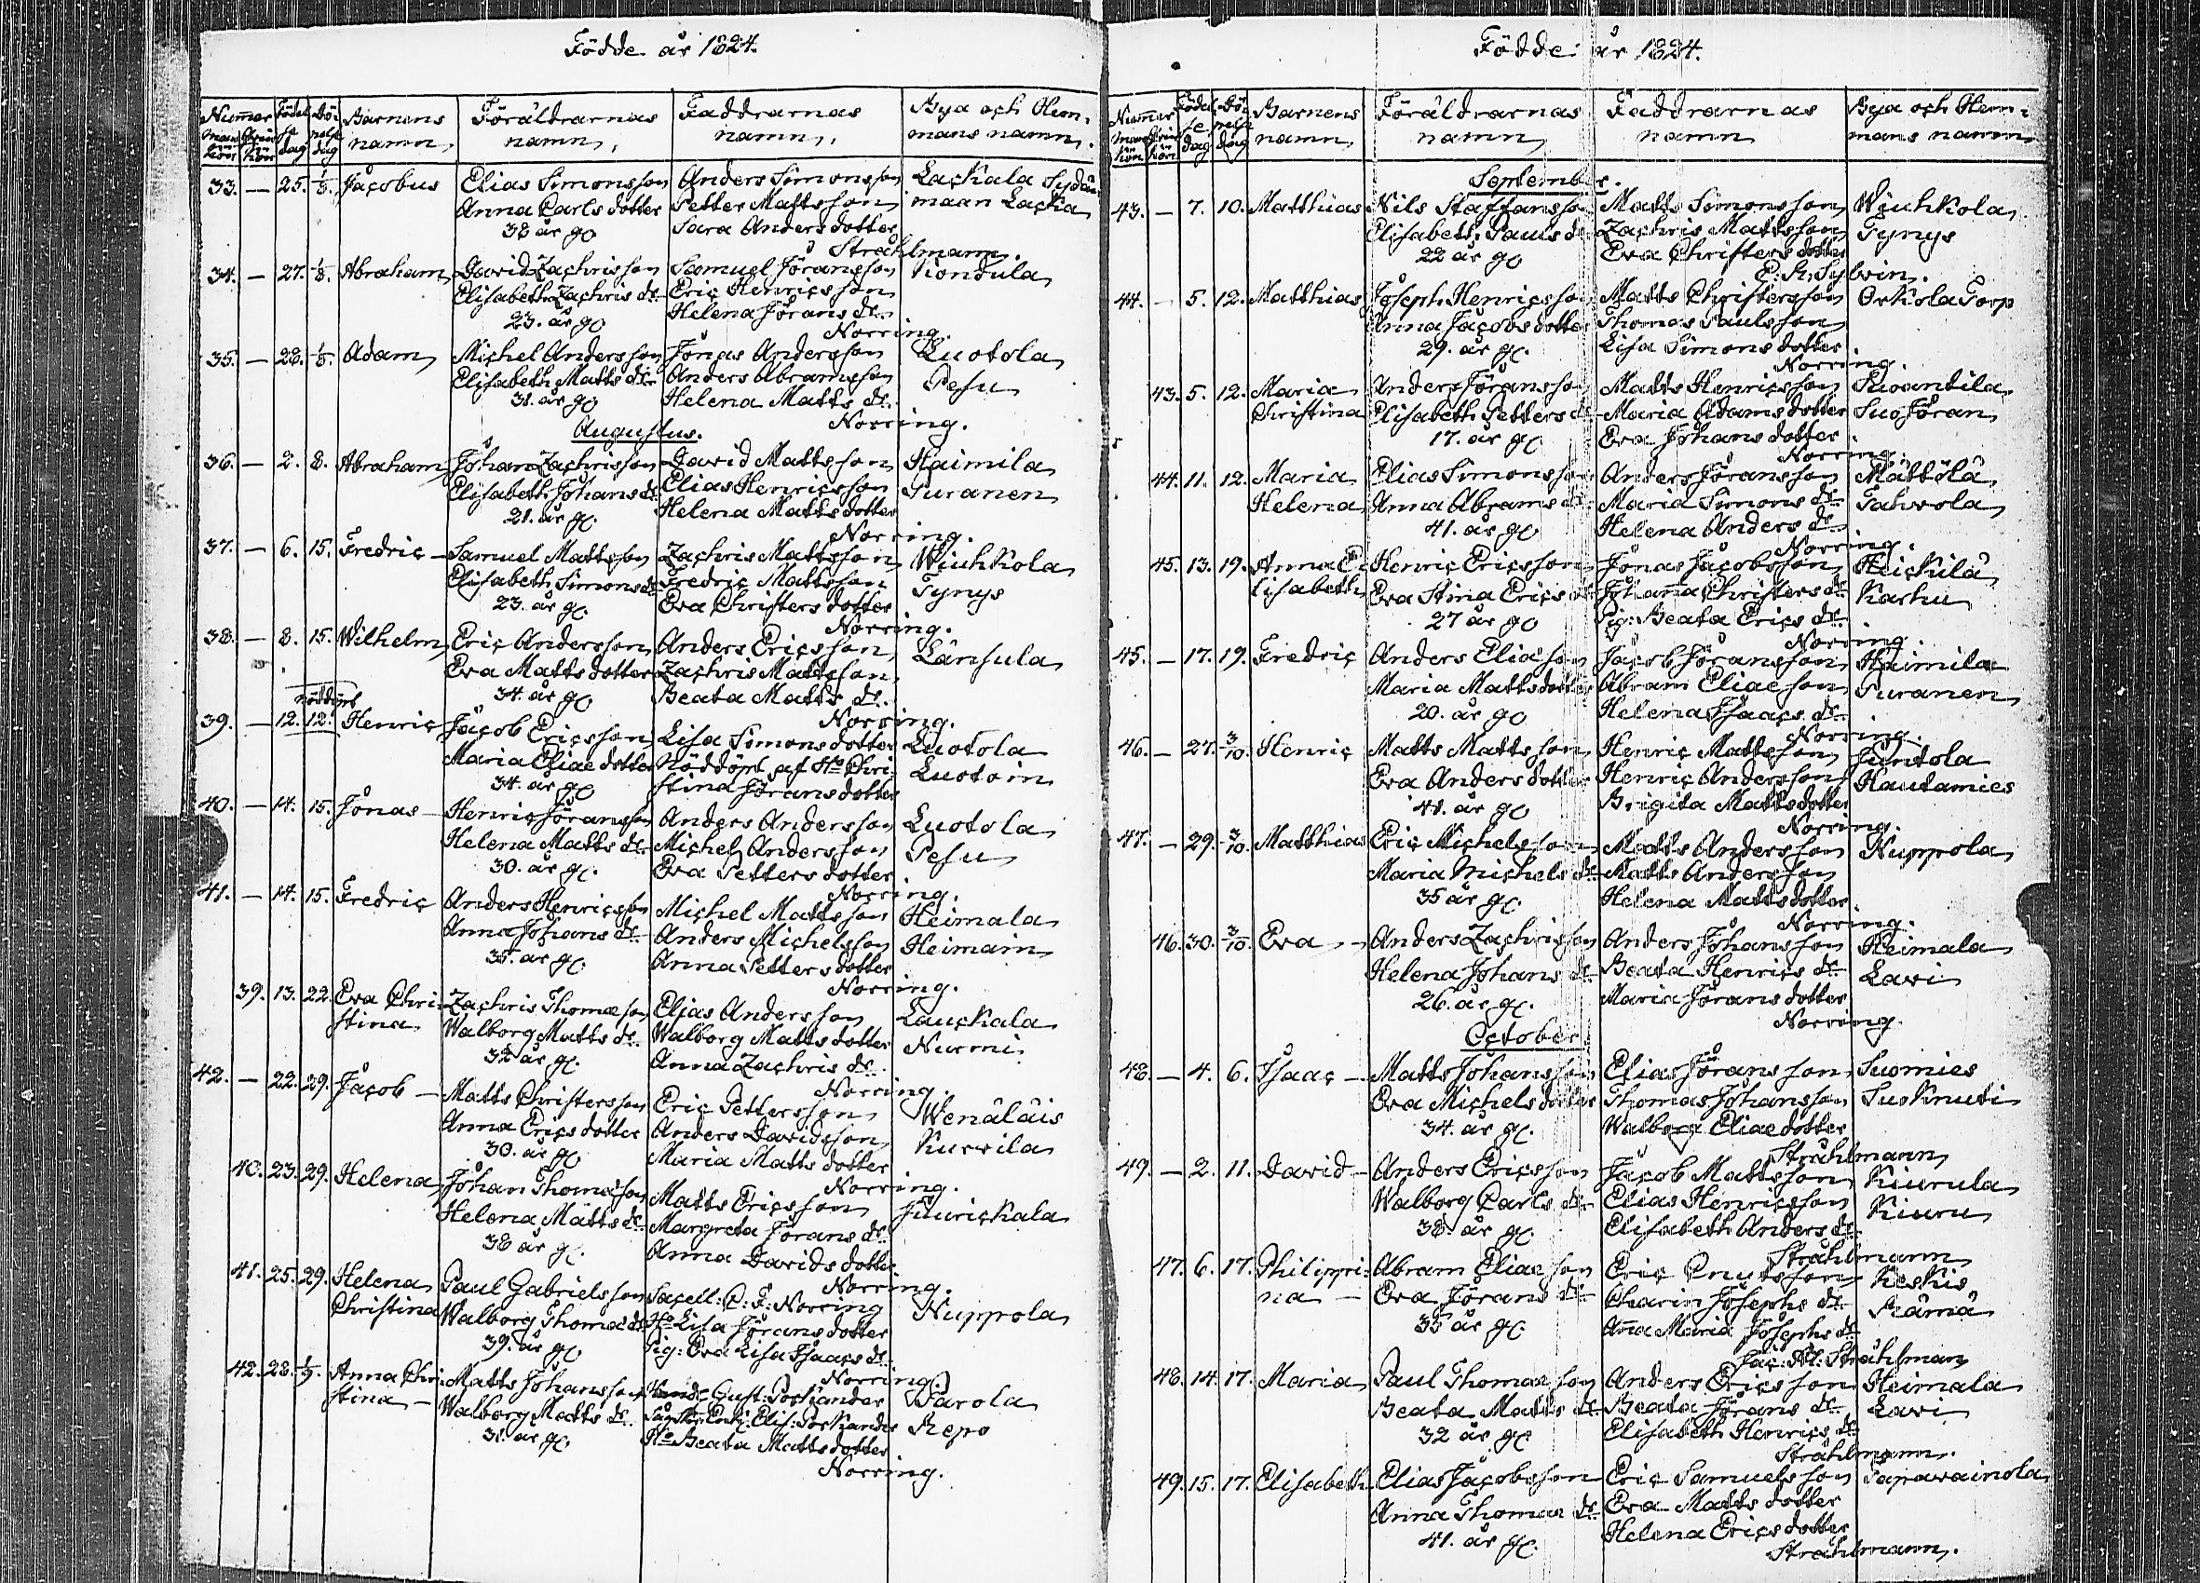 Födde år 1824.
Num̃er Födel Dö-
Barnens Föräldrarnas Faddrarnas Bya och Hem-
man qvin se pelse
kön kön dag dag namn, namn, namn, mans namn.
33. — 25. 1/8. Jacobus Elias Simonsson Anders Simonsson Lackala Sydän
Anna Carls dotter Petter Mattsson maan Lacka
38 år g. Sara Anders dotter
Stråhlmann.
34. — 27. 1/8. Abraham David Zachrisson Samuel Göransson Kondula
Elisabeth Zachris dr. Eric Henricsson
23. år g. Helena Görans dr.
Norring.
35. — 28. 1/8. Adam Michel Andersson Jonas Andersson Luotola
Elisabeth Matts dr. Anders Abramsson Pesu
31. år g. Helena Matts dr.
Norring.
Augustus.
36. — 2. 8. Abraham Johan Zachrisson David Mattsson Haimila
Elisabeth Johans dr. Elias Henricsson Puranen
21. år g. Helena Matts dotter
Norring.
37. — 6. 15. Fredric Samuel Mattsson Zachris Mattsson Wiuhkola
Elisabeth Simons dr. Fredric Mattsson Tynys
23. år g. Eva Christers dotter
Norring.
38. — 8. 15. Wilhelm Eric Andersson Anders Ericsson Länsula
Eva Matts dotter Zachris Mattsson
34. år g. Beata Matts dr.
Norring.
nöddöpt
39. — 12. 12. Henric Jacob Ericsson Lisa Simons dotter Luotola
Maria Eliae dotter Nöddöpt af Ha Chri- Luotoin
34. år g. stina Görans dotter
40. — 14. 15. Jonas — Henric Göransson Anders Andersson Luotola
Helena Matts dr. Michel Andersson Pesu
30. år g. Eva Petters dotter
Norring.
41. — 14. 15. Fredric Anders Henricsson Michel Mattsson Heimala
Anna Johans dr. Anders Michelsson Heimain
35. år g. Anna Petters dotter
Norring.
39. 13. 22. Eva Chri- Zachris Thomæson Elias Andersson Lauckala
stina Walborg Matts dr. Walborg Matts dotter Nurmi
32 år g. Anna Zachris dr.
Norring.
42. — 22. 29. Jacob — Matts Christersson Eric Pettersson Wenäläis
Anna Erics dotter Anders Davidsson Kurvila
30. år g. Maria Matts dotter
Norring.
40. 23. 29. Helena Johan Thomæson Matts Ericsson Juurickala
Helena Matts dr. Margreta Görans dr.
38 år g. Anna Davids dotter
Norring.
41. 25. 29. Helena Paul Gabrielsson Sacell: C: F: Norring Nuppola
Christina Walborg Thomæ dr. Ha Lisa Görans dotter
39. år g. Pig: Eva Lisa Isaacs dr.
Norring.
42. 28. 1/9. Anna Chri- Matts Johansson Gust: Parola
stina — Walborg Matts dr. Elis: Repo
31. år g. Ha Beata Matts dotter
Norring.
Födde år 1824.
Num̃er Födel Dö-
Barnens Föräldrarnas Faddrarnas Bya och Hem-
man qvin se pelse
kön kön dag dag namn, namn namn mans namn
September.
43. — 7. 10. Matthias Nils Staffansson Matts Simonsson Wiuhkola
Elisabeth Pauls dr. Zachris Mattsson Tynys
22 år g. Eva Christers dotter
C. R. Sylvin.
44. — 5. 12. Matthias Joseph Henricsson Matts Christersson Orkola Torp
Anna Jacobs dotter Thomas Paulsson
29. år g. Lisa Simons dotter
Norring.
43. 5. 12. Maria Anders Göransson Matts Henricsson Kuvantila
Christina Elisabeth Petters dr. Maria Adams dotter Suo Jöran
17. år g. Eva Johans dotter
Norring.
44. 11. 12. Maria Elias Simonsson Anders Göransson Mättölä
Helena Anna Abrams dr. Maria Simons dr. Tahvola
41. år g. Helena Anders dr.
Norring.
45. 13. 19. Anna E- Henric Ericsson Jonas Jacobsson Heickilä
lisabeth Eva Stina Erics dr. Johanna Christers dr. Karhu
27 år g. Pig: Beata Erics dr.
Norring.
45. — 17. 19. Fredric Anders Eliæson Jacob Göransson Haimila
Maria Matts dotter Abram Eliaeson Puranen
20. år g. Helena Isaacs dr.
Norring.
46. — 27. 3/10. Henric Matts Mattsson Henric Mattsson Juntola
Eva Anders dotter Henric Andersson Hautamies
41. år g. Brigita Matts dotter
Norring.
47. — 29. 3/10. Matthias Eric Michelsson Matts Andersson Nuppola
Maria Michels dr. Matts Andersson
35 år g. Helena Matts dotter
Norring.
46. 30. 3/10. Eva — Anders Zachrisson Anders Johansson Heimala
Helena Johans dr. Beata Henrics dr. Lavi
26. år g. Maria Görans dotter
Norring.
October.
48. — 4. 6. Isaac — Matts Johansson Elias Göransson Suomies
Eva Michels dotter Thomas Johansson Suo Knuti
34. år g. Walborg Eliae dotter
Stråhlmann
49. — 2. 11. David — Anders Ericsson Jacob Mattsson Kiurula
Walborg Carls dr. Elias Henricsson Kiuru
38. år g. Elisabeth Anders dr.
Stråhlmann
47. 6. 17. Philippi- Abram Eliaeson Eric Cnutsson Keskis
na — Eva Görans dr. Charin Josephs dr. Rämä
35 år g. Anna Maria Josephs dr.
Sac: Ad: Stråhlman
48. 14. 17. Maria Paul Thomæson Anders Ericsson Heimala
Beata Matts dr. Beata Görans dr. Lavi
32 år g. Elisabeth Henrics dr.
Stråhlmann.
49. 15. 17. Elisabeth Elias Jacobsson Eric Samuelsson Papavainola
Anna Thomæ dr. Eva Matts dotter
41. år g. Helena Erics dotter
Stråhlmann.